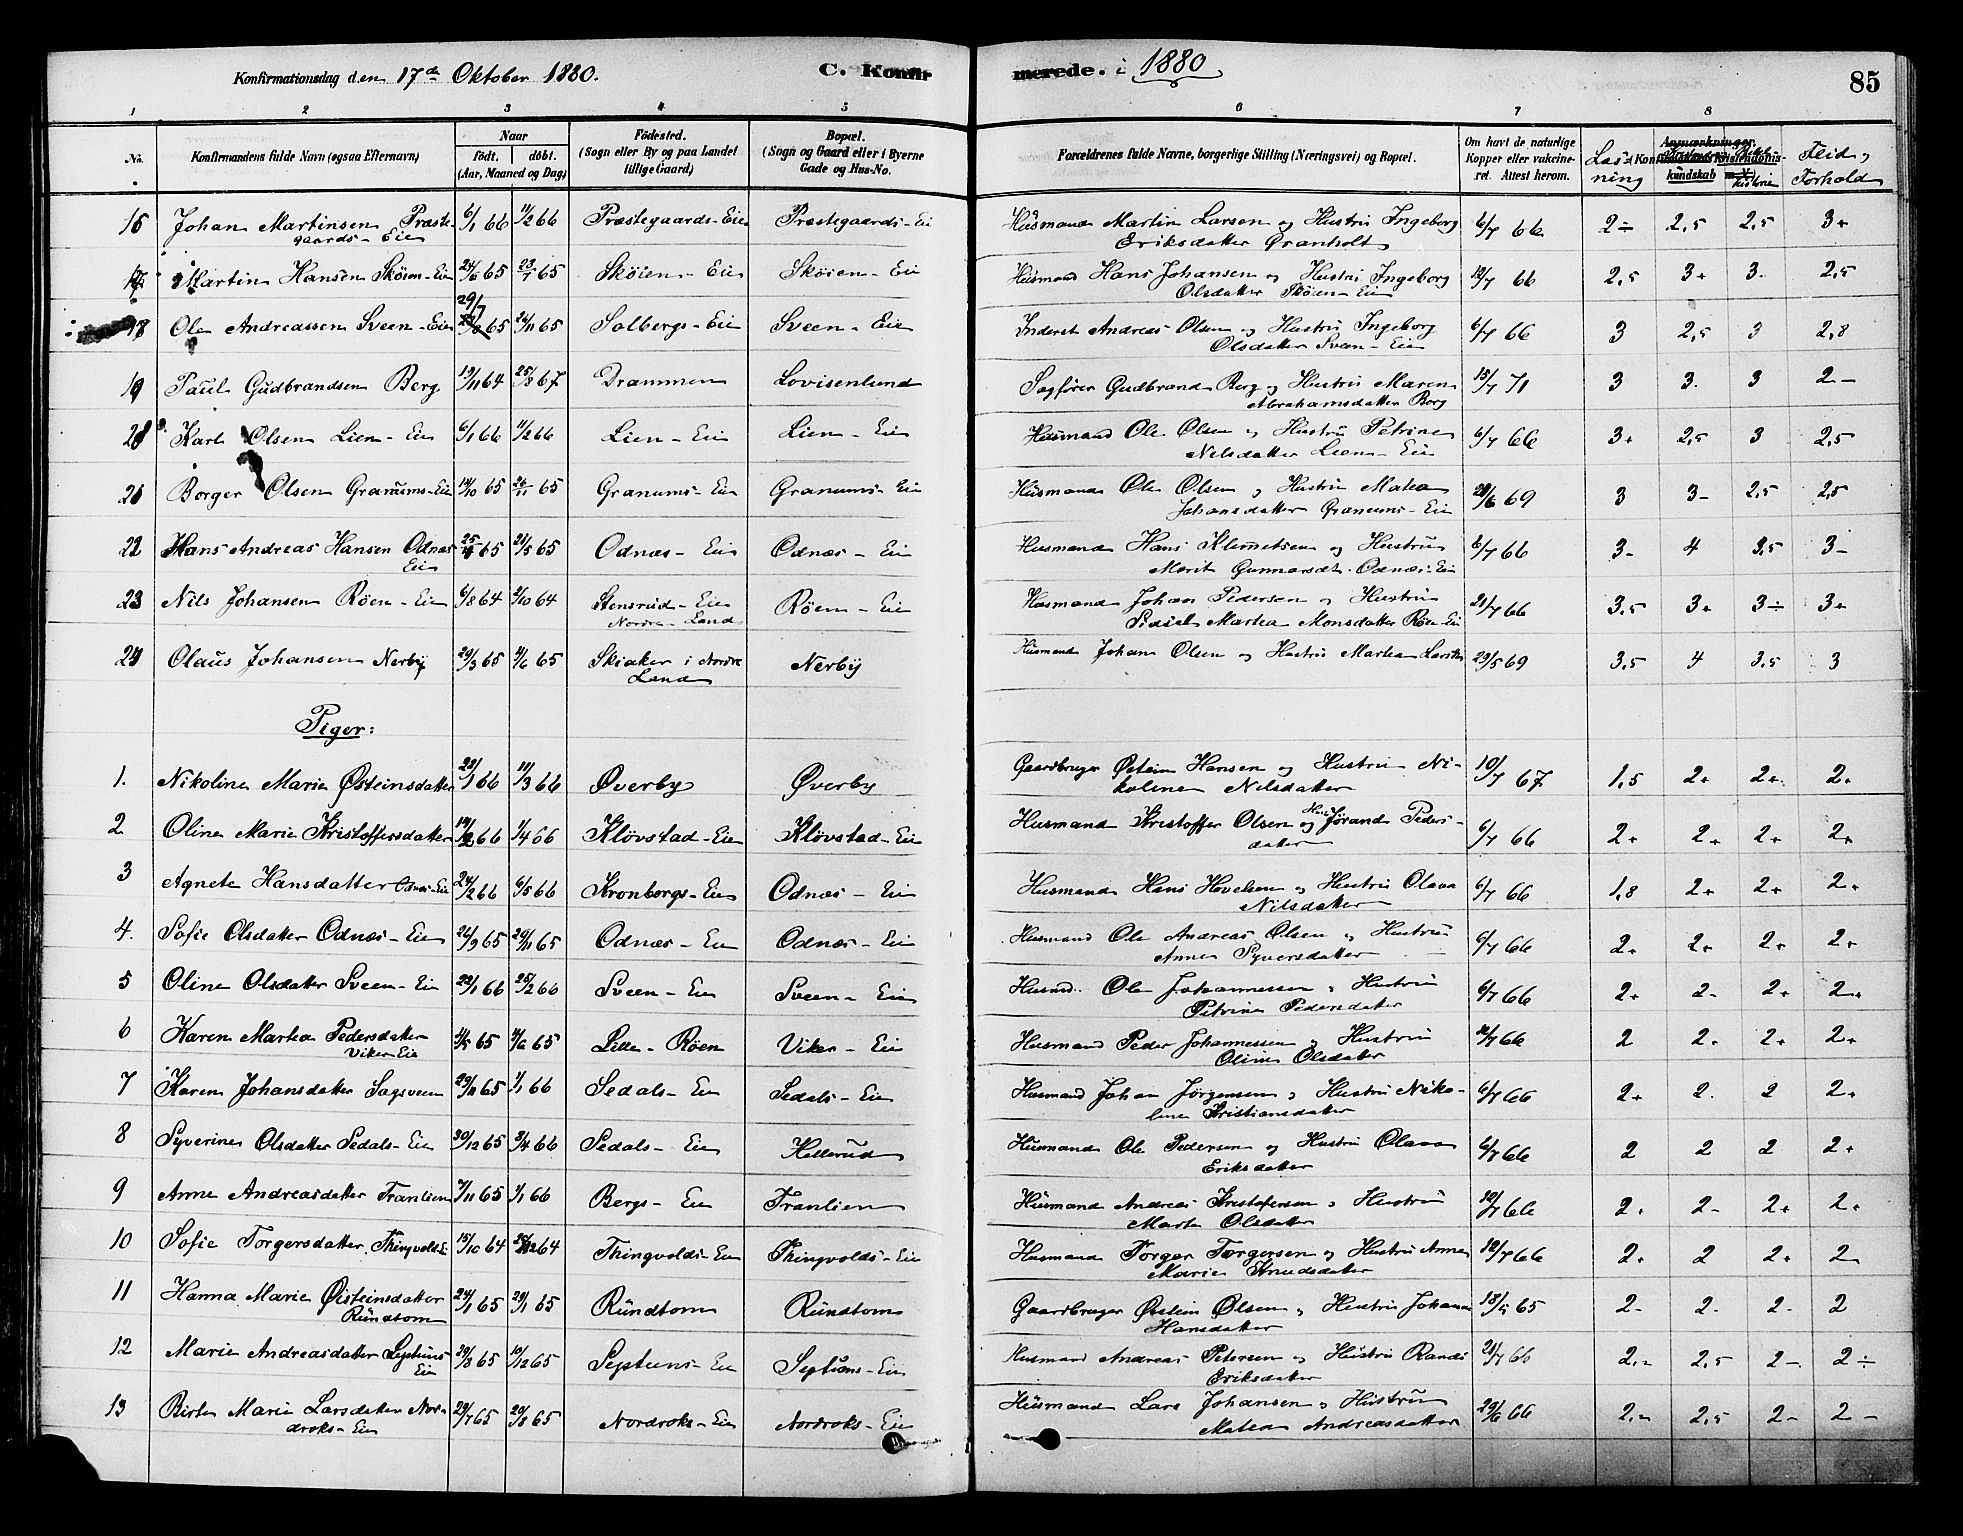 Konfirmationsdag den 17de Oktober 1880.
C. Konfirmerede. i 1880
85
1 2 3 4 5 6 7 8
No. Konfirmandens fulde Navn (ogsaa Efternavn) Naar født. døbt. (Aar, Maaned og Dag) Fødested. (Sogn eller By og paa Landet tillige Gaard) Bopæl. (Sogn og Gaard eller i Byerne Gade og Hus-No. Forældrenes fulde Navne, borgerlige Stilling (Næringsvei) og Bopæl. Om havt de naturlige Kopper eller vakcineret. Attest herom. Læsning kundskab historie Flid og Forhold
16 Johan Martinsen Præstegaards-Eie 6/1 66 11/2 66 Præstegaards-Eie Præstegaards-Eie Husmand Martin Larsen og Hustru Ingeborg Eriksdatter Granholt 6/7 66 2÷ 2,5 2,5 3+
17 Martin Hansen Skøien-Eie 24/6 65 23/7 65 Skøien-Eie Skøien-Eie Husmand Hans Johansen og Hustru Ingeborg Olsdatter Skøien-Eie 12/7 66 2,5 3+ 3- 2,5
18 Ole Andreassen Sveen-Eie 29/7 65 26/11 65 Solbergs-Eie Sveen-Eie Inderst Andreas Olsen og Hustru Ingeborg Olsdatter Sveen-Eie 6/7 66 3 2,5 3 2,8
19 Paul Gudbrandsen Berg 19/11 64 25/3 67 Drammen Lovisenlund Sagfører Gudbrand Berg og Hustru Maren Abrahamsdatter Berg 13/7 71 3 3. 3 2-
20 Karl Olsen Lien-Eie 6/1 66 11/2 66 Lien-Eie Lien-Eie Husmand Ole Olsen og Hustru Petrine Nilsdatter Lien-Eie 6/7 66 3+ 2,5 3 2,5
21 Borger Olsen Granums-Eie 14/10 65 26/11 65 Granums-Eie Granums-Eie Husmand Ole Olsen og Hustru Matea Johansdatter Granums-Eie 28/6 69 3 3- 2,5 2,5
22 Hans Andreas Hansen Odnæs Eie 25/4 65 21/5 65 Odnæs-Eie Odnæs-Eie Husmand Hans Klemetsen og Hustru Marit Gunnarsdt. Odnæs-Eie 6/7 66 3- 4 3,5 3-
23 Nils Johansen Røen-Eie 6/8 64 2/10 64 Stensrud-Eie Nordre-Land Røen-Eie Husmand Johan Pedersen og Hustru Sidsel Martea Monsdatter Røen-Eie 21/7 66 3,5 3+ 3÷ 3+
24 Olaus Johansen Nerby 29/3 65 4/6 65 Skiaker i Nordre Land Nerby Husmand Johan Olsen og Hustru Martea Larsdtr 23/5 69 3,5 4 3,5 3
Piger:
1. Nikoline Marie Østeinsdatter 28/1 66 11/3 66 Øverby Øverby Gaardbruger Østein Hansen og Hustru Nikoline Nilsdatter 10/7 67 1,5 2+ 2+ 2+
2 Oline Marie Kristoffersdatter 66 1/4 66 Kløvstad-Eie Kløvstad-Eie Husmand Kristoffer Olsen og Hust. Jørand Pedersdatter 6/7 66 2+ 2+ 2+ 2+
3 Agnete Hansdatter Odnæs-Eie 24/2 66 6/5 66 Kronborgs-Eie Odnæs-Eie Husmand Hans Hovelsen og Hustru Olava Nilsdatter 6/7 66 1,8 2+ 2+ 2+
4. Sofie Olsdatter Odnæs-Eie 26/9 65 26/11 65 Odnæs-Eie Odnæs-Eie Husmand Ole Andreas Olsen og Hustru Anne Syversdatter 6/7 66 2+ 2+ 2+ 2+
5 Oline Olsdatter Sveen-Eie 22/1 66 25/2 66 Sveen-Eie Sveen-Eie Husmd. Ole Johannessen og Hustru Petrine Pedersdatter 6/7 66 2+ 2- 2+ 2+
6 Karen Martea Pedersdatter Viker-Eie 65 4/6 65 Lille-Røen Viker-Eie Husmand Peder Johannessen og Hustru Oline Olsdatter 66 2 2+ 2+ 2+
7 Karen Johansdatter Sagsveen 23/11 65 1/1 66 Sedals-Eie Sedals-Eie Husmand Johan Jørgensen og Hustru Nikoline Kristiansdatter 6/7 66 2+ 2. 2 2+
8 Syverine Olsdatter Sedals-Eie 30/12 65 2/4 66 Sedals-Eie Hellerud Husmand Ole Pedersen og Hustru Olava Eriksdatter 6/7 66 2 2 2 2+
9 Anne Andreasdatter Tranlien 7/11 65 1/1 66 Bergs-Eie Tranlien Husmand Andreas Kristofersen og Hustru Marte Olsdatter 12/7 66 2+ 2- 2+ 2+
10 Sofie Torgersdatter Thingvolds-E 15/10 64 64 Thingvolds-Eie Thingvolds-Eie Husmand Torger Torgersen og Hustru Anne Marie Knudsdatter 12/7 66 2+ 2 2+ 2
11 Hanna Marie Øisteinsdatter Rundtom 24/1 65 29/1 65 Rundtom Rundtom Gaardbruger Østein Olsen og Hustru Johanne Hansdatter 65 2- 2- 2- 2
12 Marie Andreasdatter Septuns-Eie 29/3 65 10/12 65 Septuns-Eie Septuns-Eie Husmand Andreas Petersen og Hustru Randi Eriksdatter 21/7 66 2,- 2,5 2- 2÷
13 Birte Marie Larsdatter Nordroks-Eie 23/7 65 20/8 65 Nordroks-Eie Nordroks-Eie Husmand Lars Johansen og Hustru Matea Andreasdatter 29/6 66 2,- 2,5 2- 2-